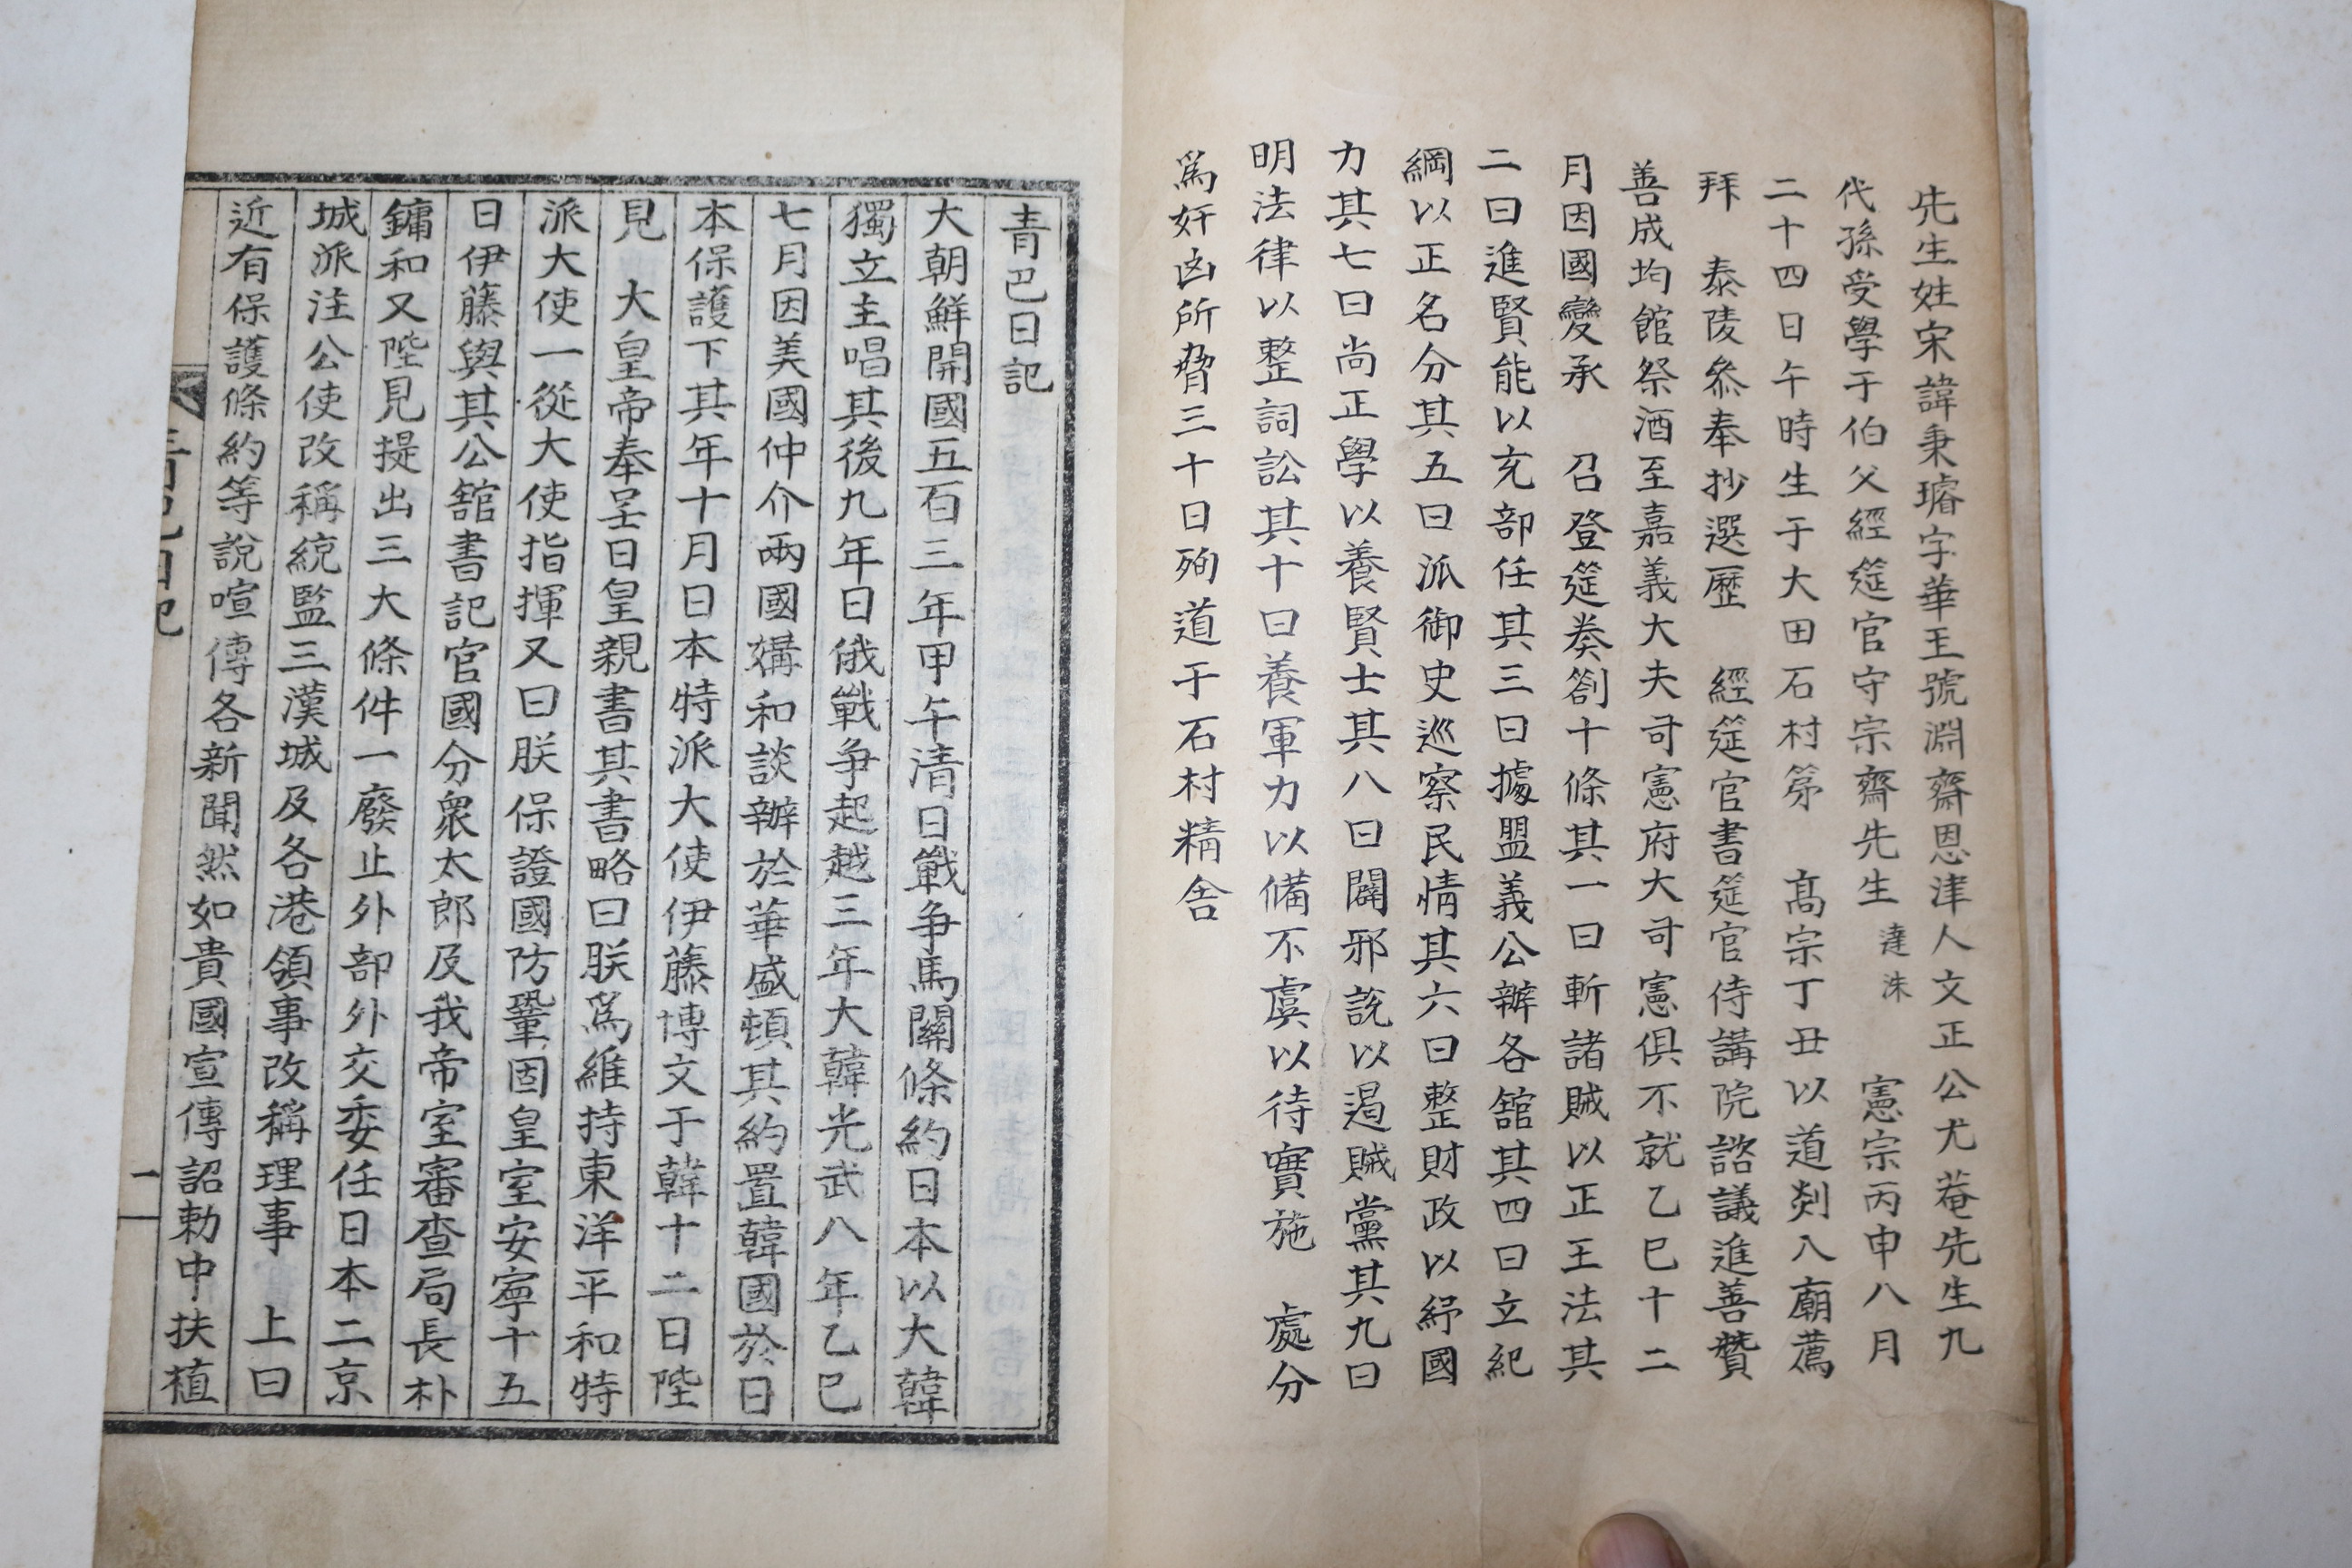 先生姓宋諱秉璿字華玉號淵齋恩津人文正公尤菴先生九
代孫受學于伯父經筵官守宗齋先生 達洙 憲宗丙申八月
二十四日午時生于大田石村第 高宗丁丑以道剡入廟薦
拜 泰陵叅奉抄選歷 經筵官書筵官侍講院諮議進善贊
善成均館祭酒至嘉義大夫司憲府大司憲俱不就乙巳十二
月因國變承 召登筵奏劄十條其一曰斬諸賊以正王法其
二曰進賢能以充部任其三曰據盟義公辦各舘其四曰立紀
綱以正名分其五曰派御史巡察民情其六曰整財政以紓國
力其七曰尚正學以養賢士其八曰闢邪説以遏賊黨其九曰
明法律以整詞訟其十曰養軍力以備不虞以待實施 處分
爲奸凶所脅三十日殉道于石村精舍
青巴日記
大朝鮮開國五百三年甲午清日戰争馬關條約日本以大韓
獨立主唱其後九年日俄戰争起越三年大韓光武八年乙巳
七月因美國仲介兩國媾和談辦於華盛頓其約置韓國於日
本保護下其年十月日本特派大使伊藤博文于韓十二日陛
見 大皇帝奉呈日皇親書其書略曰朕爲維持東洋平和特
派大使一從大使指揮又曰朕保證國防鞏固皇室安寧十五
日伊藤與其公舘書記官國分象太郎及我帝室審查局長朴
鏞和又陛見提出三大條件一廢止外部外交委任日本二京
城派注公使改稱統監三漢城及各港領事改稱理事 上曰
近有保護條約等說喧傳各新聞然如貴國宣傳詔勅中扶植
青巴日記
一